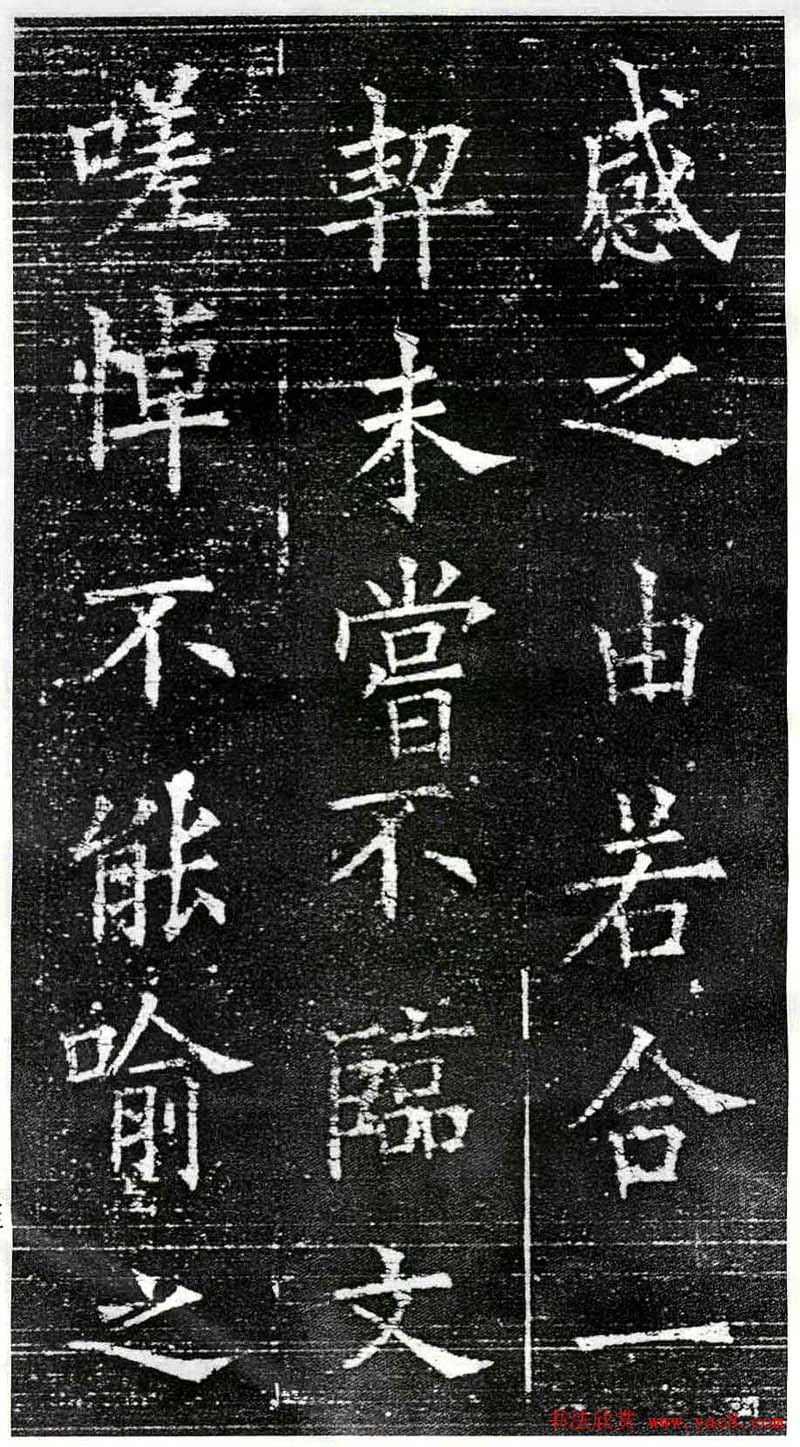 感之由若合一
契未嘗不臨文
嗟悼不能喻之
书法欣赏 www.yac8.com